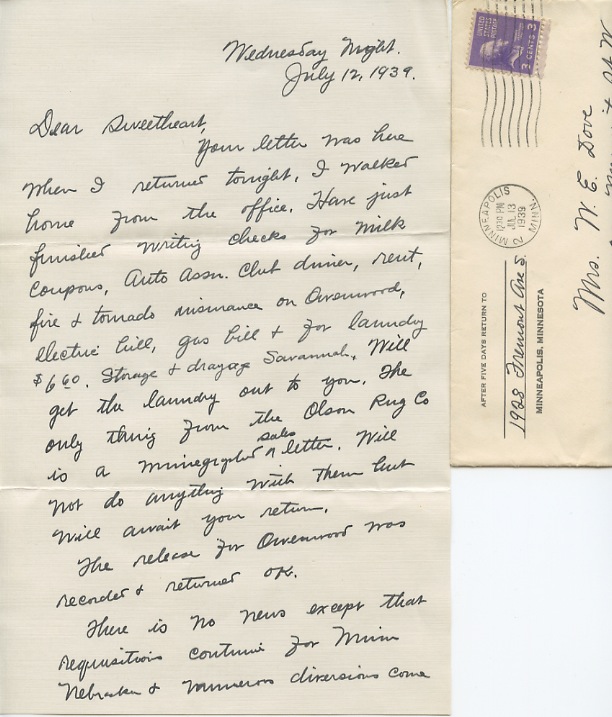 Wednesday Night.
July 12, 1939.
Dear Sweetheart,
Your letter was here
when I returned tonight. I walked
home from the office. Have just
finished writing checks for milk
coupons, Auto Assn. Club dinner, rent,
fire & tornado insurance on Owenwood,
electric bill, gas bill & for laundry
$6.60. Storage & drayage Savannah. Will
get the laundry out to you. The
only thing from the Olson Rug Co
is a mimegraphed sales letter. Will
not do anything with them but
will await your return.
The release for Owenwood was
recorded & returned OK.
There is no news except that
requisitions continue for Minn
Nebraska & numerous diversions come
UNITED STATES POSTAGE
3 CENTS 3
MINNEAPOLIS 2 MINN.
12 30 PM
JUL 13
1939
Mrs. W. E. Dove
AFTER FIVE DAYS RETURN TO
1928 Fremont Ave S.
MINNEAPOLIS, MINNESOTA